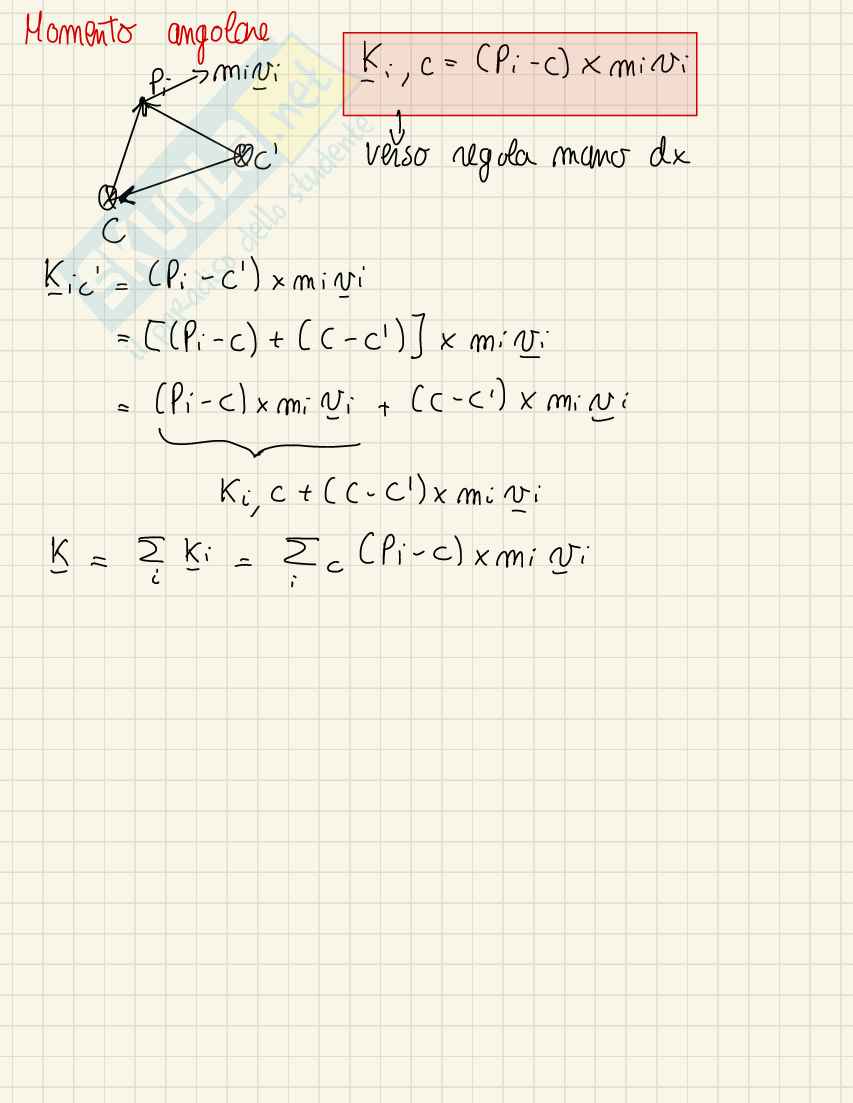 Momento angolare
Pi mivi
C'
C
Ki,c = (Pi-c) × mivi
verso regola mano dx
Kic' = (Pi-c') × mivi
= [(Pi-c) + (C-c')] × mivi
= (Pi-c) × mivi + (C-c') × mivi
Ki,c + (C-C') × mivi
K = Σi Ki = Σi c (Pi-c) × mivi
SKUOLA.net
il paradiso dello studente